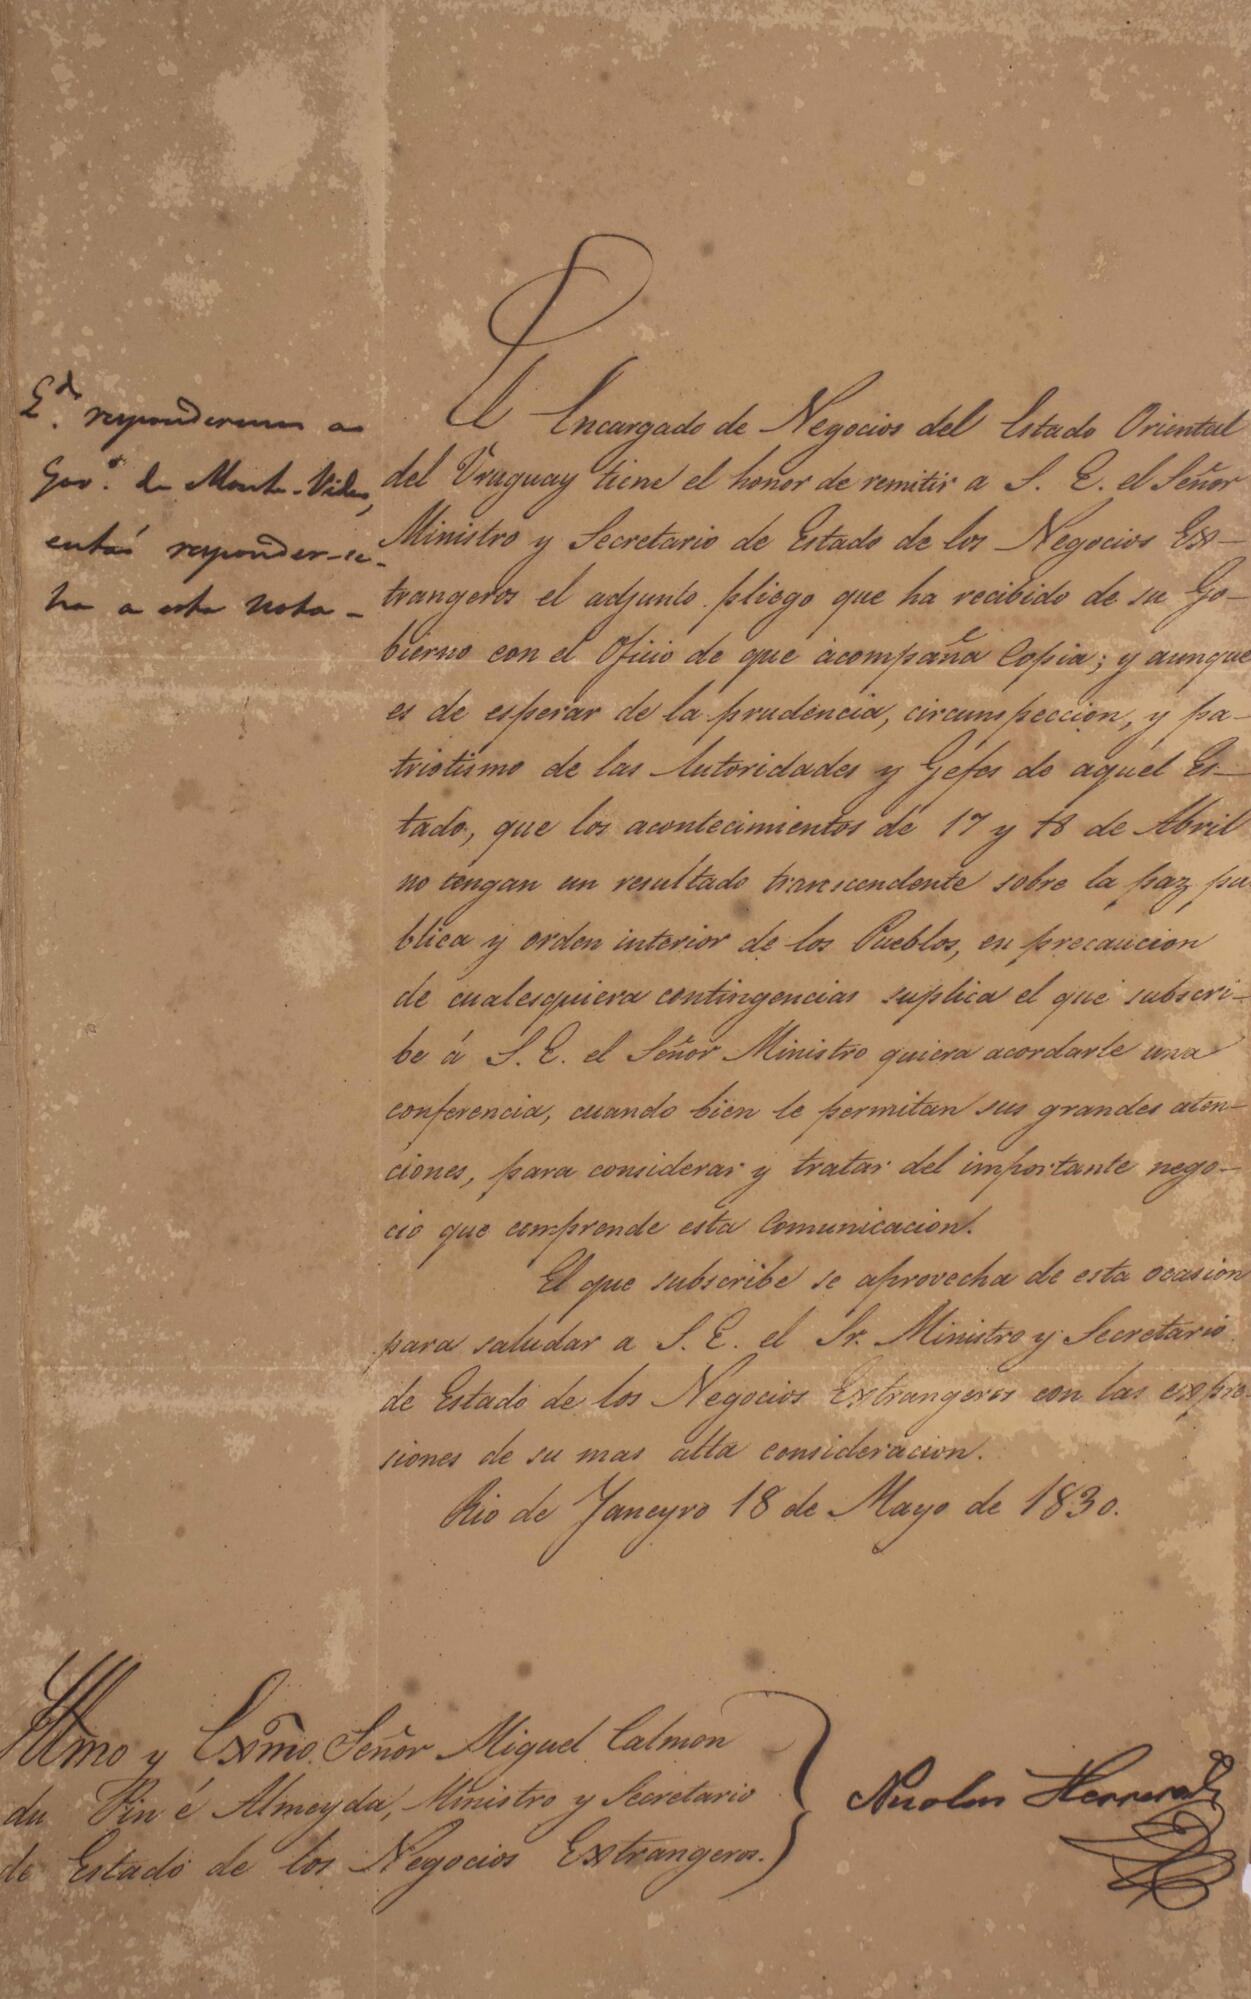 Qdo responderem ao
Govo. de Monte-Video,
entaõ responder-se-
ha a esta nota -
El Encargado de Negocios del Estado Oriental
del Uruguay tiene el honor de remitir a S. E. el Señor
Ministro y Secretario de Estado de los Negocios Ex-
trangeros el adjunto pliego que ha recibido de su Go-
bierno con el Oficio de que acompaña Copia; y aunque
es de esperar de la prudencia, circumspeccion, y pa-
triotismo de las Autoridades y Géfes de aquel Es-
tado, que los acontecimientos de 17 y 18 de Abril
no tengan un resultado transcendente sobre la paz pu
blica y orden interior de los Pueblos, en precaucion
de cualesquiera contingencias suplica el que subscri-
be á S. E. el Señor Ministro quiera acordarle una
conferencia, cuando bien le permitan sus grandes aten-
ciones, para considerar y tratar del importante nego-
cio que comprende esta Comunicacion.
El que subscribe se aprovecha de esta ocasion
para saludar a S. E. el Sr. Ministro y Secretario
de Estado de los Negocios Extrangeros con las expre-
siones de su mas alta consideracion.
Rio de Janeyro 18 de Mayo de 1830.
Illmo y Exmo. Señor Miguel Calmon
du Pin é Almeyda, Ministro y Secretario
de Estado de los Negocios Extrangeros.
Nicolas Herrera